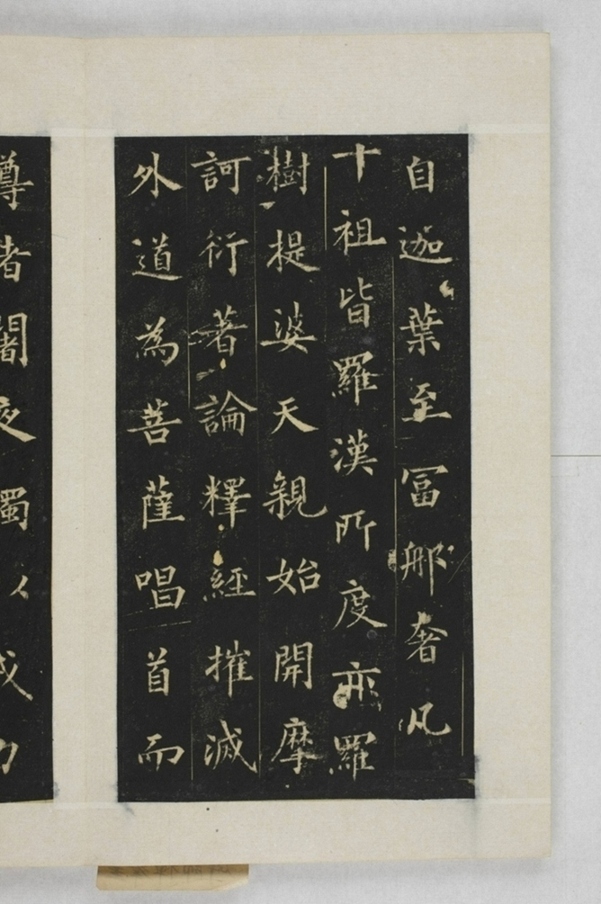 自迦葉至冨郍奢凡
十祖皆羅漢所度亦羅
樹提婆天親始開摩
訶衍著論釋經摧滅
外道為菩薩唱首而
尊者闍夜獨以戒力